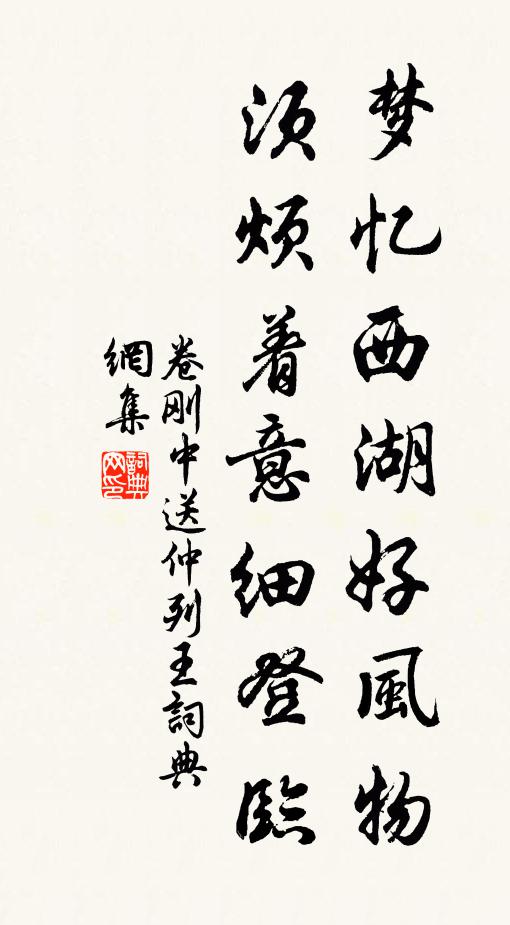 梦忆西湖好風物
须烦着意细登临
卷刚中送仲列王詞典
網集
詞典网印